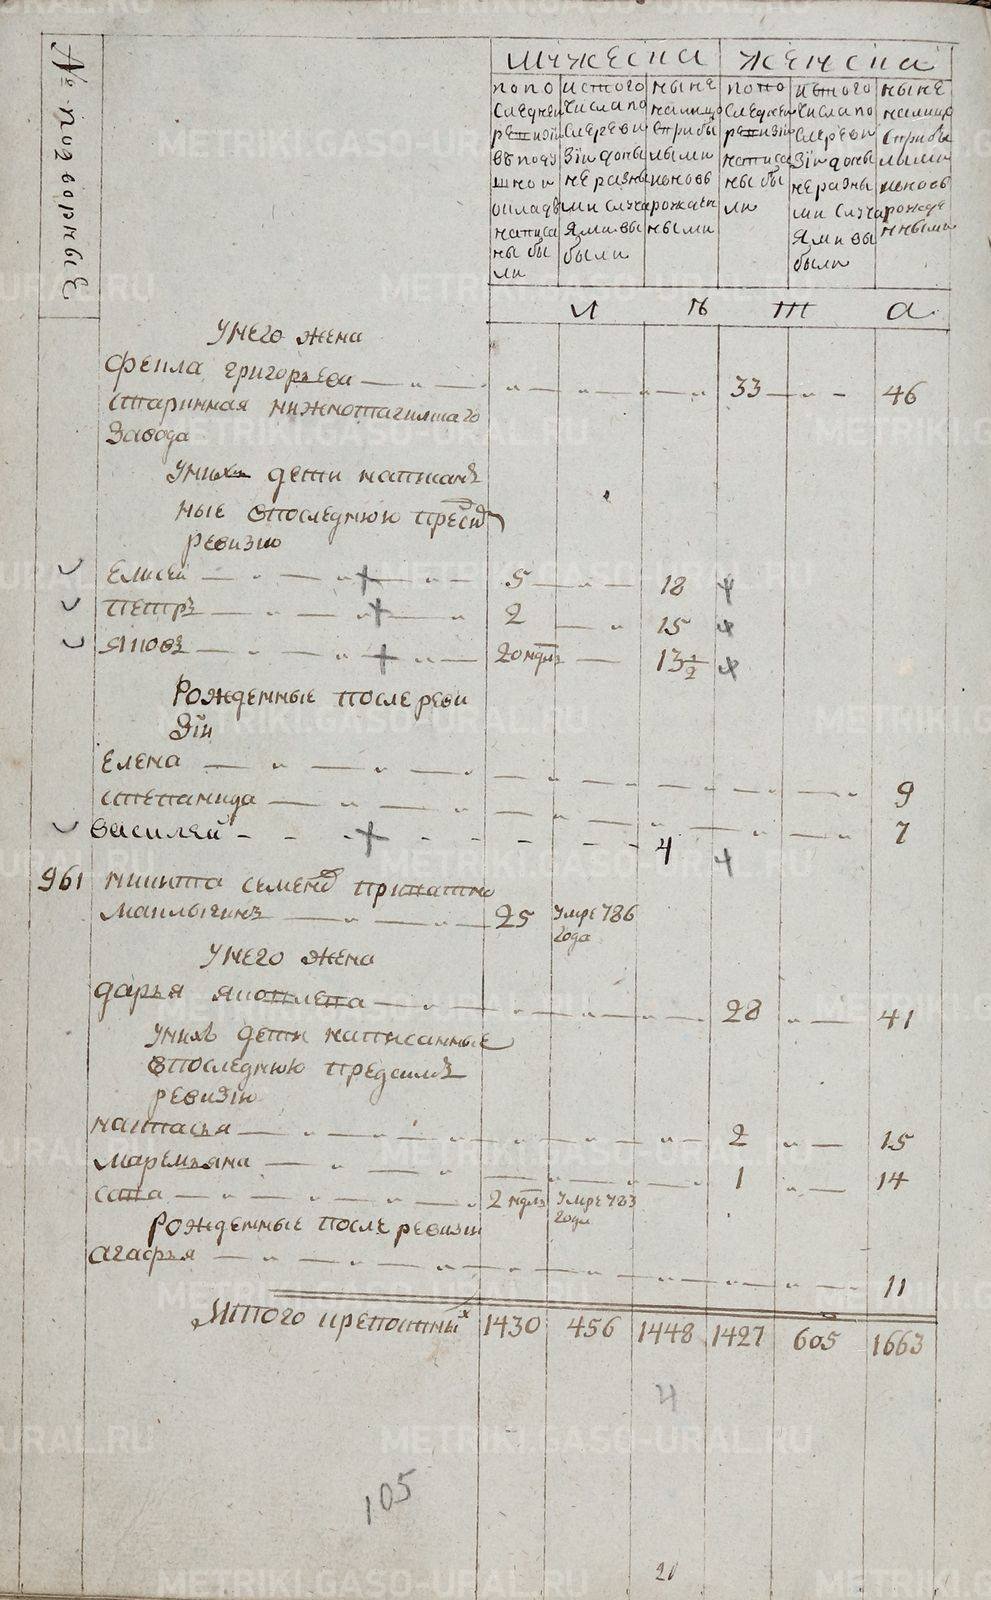 № подворныя
мужеска
женска
по по
следней
ревизiи
въ поду
шной
окладъ
написа
ны бы
ли
из того
числа по
сле реви
зiи донынѣ
разны
ми случа
ями вы
были
ныне
налицо
с прибы
лыми
и вновь
рожден
ными
по по
следней
ревизiи
написа
ны бы
ли
из того
числа по
сле реви
зiи доны
не разны
ми случа
ями вы
были
ныне
налицо
с прибы
лыми
и вновь
рожде
нными
л ѣ т а
У него жена
Фекла григорьева 33 46
старинная нижнотагилскаго
завода
У них дети написан
ные в последнюю пред
ревизию
Елисей 5 18
петръ 2 15
Яковъ 20 ндль 13 1/2
Рожденные после реви
зiи
Елена 9
степанида 7
василей 4
961 никита семенов
25 умре 786
года
У него жена
дарья яковлева 28 41
У них дети написанные
в последнюю пред сим
ревизiю
настасья 2 15
маремьяна 1 14
савва 2 ндль умре 783
года
Рожденные после ревизiи
агафья 11
Итого крепостных 1430 456 1448 1427 605 1663
4
105
21
METRIKI.GASO-URAL.RU